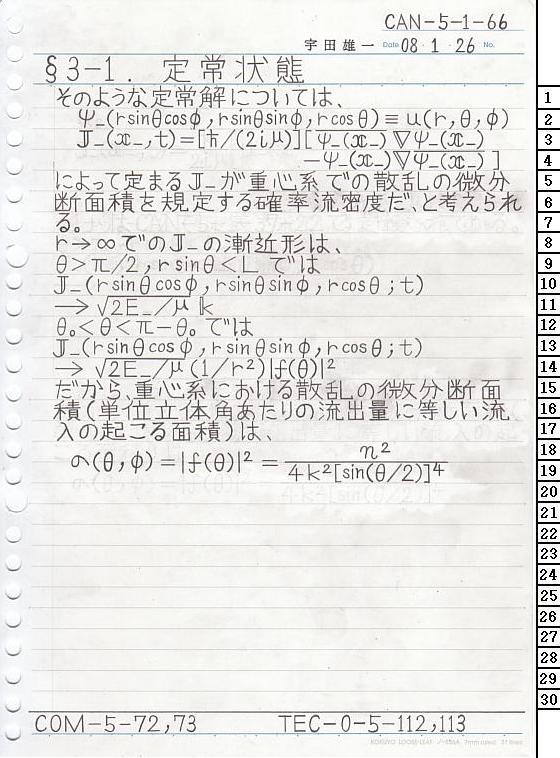 CAN-5-1-66
宇田雄一 Date 08・1・26 No.
§3-1. 定常状態
そのような定常解については、
ψ_(rsinθcosφ,rsinθsinφ,rcosθ)≡u(r,θ,φ)
J_(x_,t)=[ℏ/(2iμ)][ \overline{ψ_(x_)}∇ψ_(x_)
−ψ_(x_)∇\overline{ψ_(x_)} ]
によって定まるJ_が重心系での散乱の微分
断面積を規定する確率流密度だ、と考えられ
る。
r→∞でのJ_の漸近形は、
θ>π/2,rsinθ<Lでは
J_(rsinθcosφ,rsinθsinφ,rcosθ;t)
→√2E_/μ 𝕜
θ₀<θ<π−θ₀では
J_(rsinθcosφ,rsinθsinφ,rcosθ;t)
→√2E_/μ(1/r²)|f(θ)|²
だから、重心系における散乱の微分断面
積(単位立体角あたりの流出量に等しい流
入の起こる面積)は、
σ(θ,φ)=|f(θ)|²=n²/4k²[sin(θ/2)]⁴
COM-5-72,73 TEC-0-5-112,113
KOKUYO LOOSE-LEAF ノ-836A 7mm ruled 31 lines
1
2
3
4
5
6
7
8
9
10
11
12
13
14
15
16
17
18
19
20
21
22
23
24
25
26
27
28
29
30